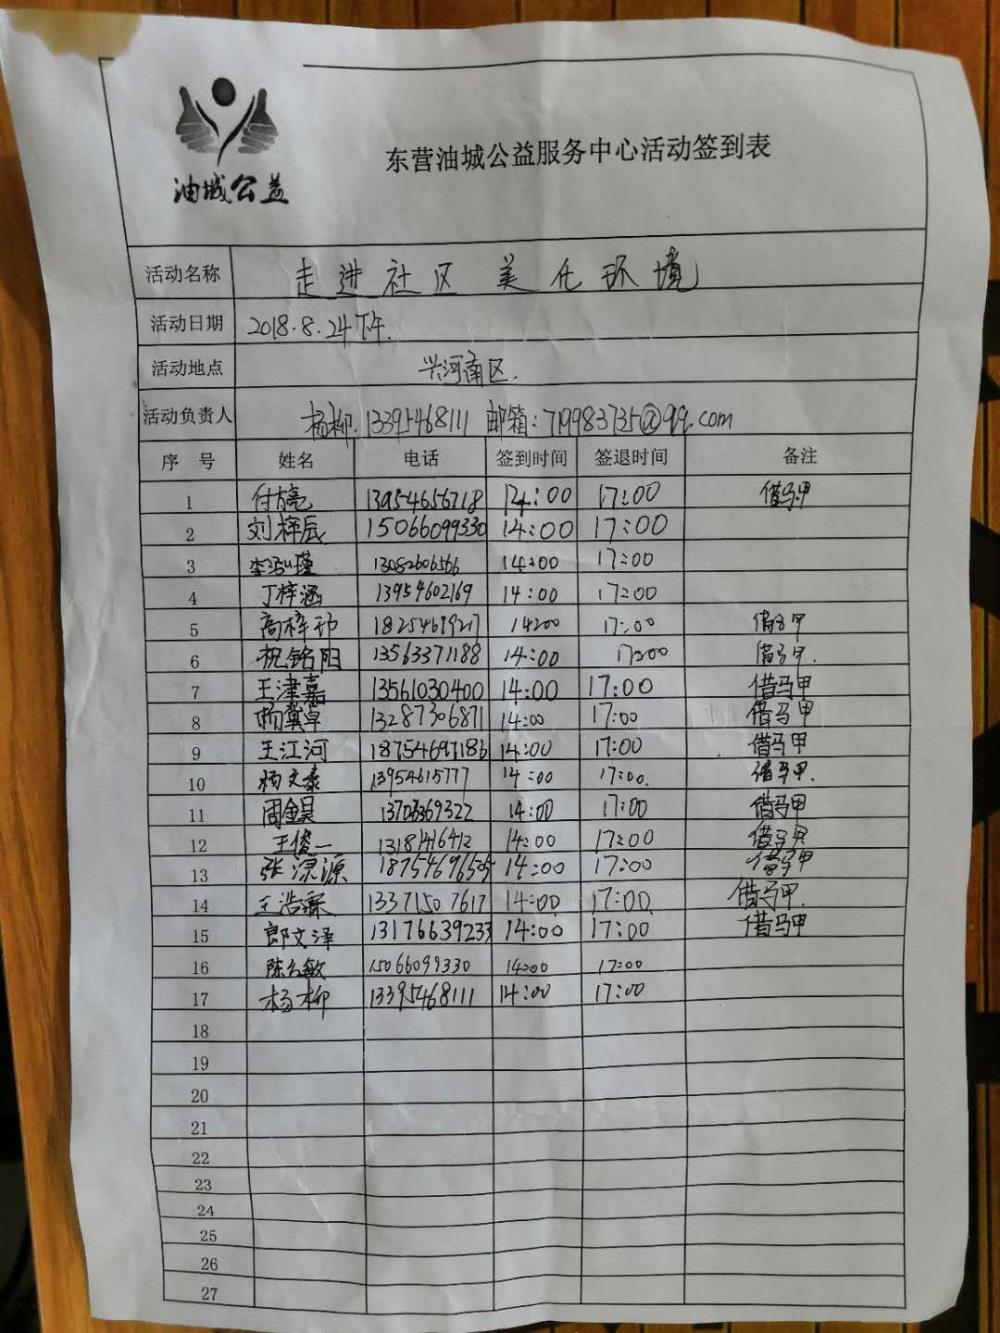 油城公益
东营油城公益服务中心活动签到表
活动名称 走进社区 美化环境
活动日期 2018.8.24下午.
活动地点 兴河南区.
活动负责人 杨柳.13395468111 邮箱:719983735@qq.com
序 号 姓名 电话 签到时间 签退时间 备注
1 13954656718 14:00 17:00 借马甲
2 刘梓辰 15066099330 14:00 17:00
3 李泓瑾 13082606566 14:00 17:00
4 丁梓涵 13954602169 14:00 17:00
5 高梓 14:00 17:00 借马甲
6 祝铭阳 13563371188 14:00 17:00 借马甲.
7 王津嘉 13561030400 14:00 17:00 借马甲
8 杨冀卓 13287306871 14:00 17:00 借马甲
9 王江河 18754697186 14:00 17:00 借马甲
10 杨文泰 13954615777 14:00 17:00. 借马甲.
11 周金昊 14:00 17:00 借马甲
12 王俊一 14:00 17:00 借马甲
13 张 源 14:00 17:00 借马甲
14 王浩霖 13371507617 14:00 17:00 借马甲.
15 郎文泽 13176639233 14:00 17:00 借马甲
16 陈 敏 15066099330 14:00 17:00
17 杨柳 13395468111 14:00 17:00
18
19
20
21
22
23
24
25
26
27